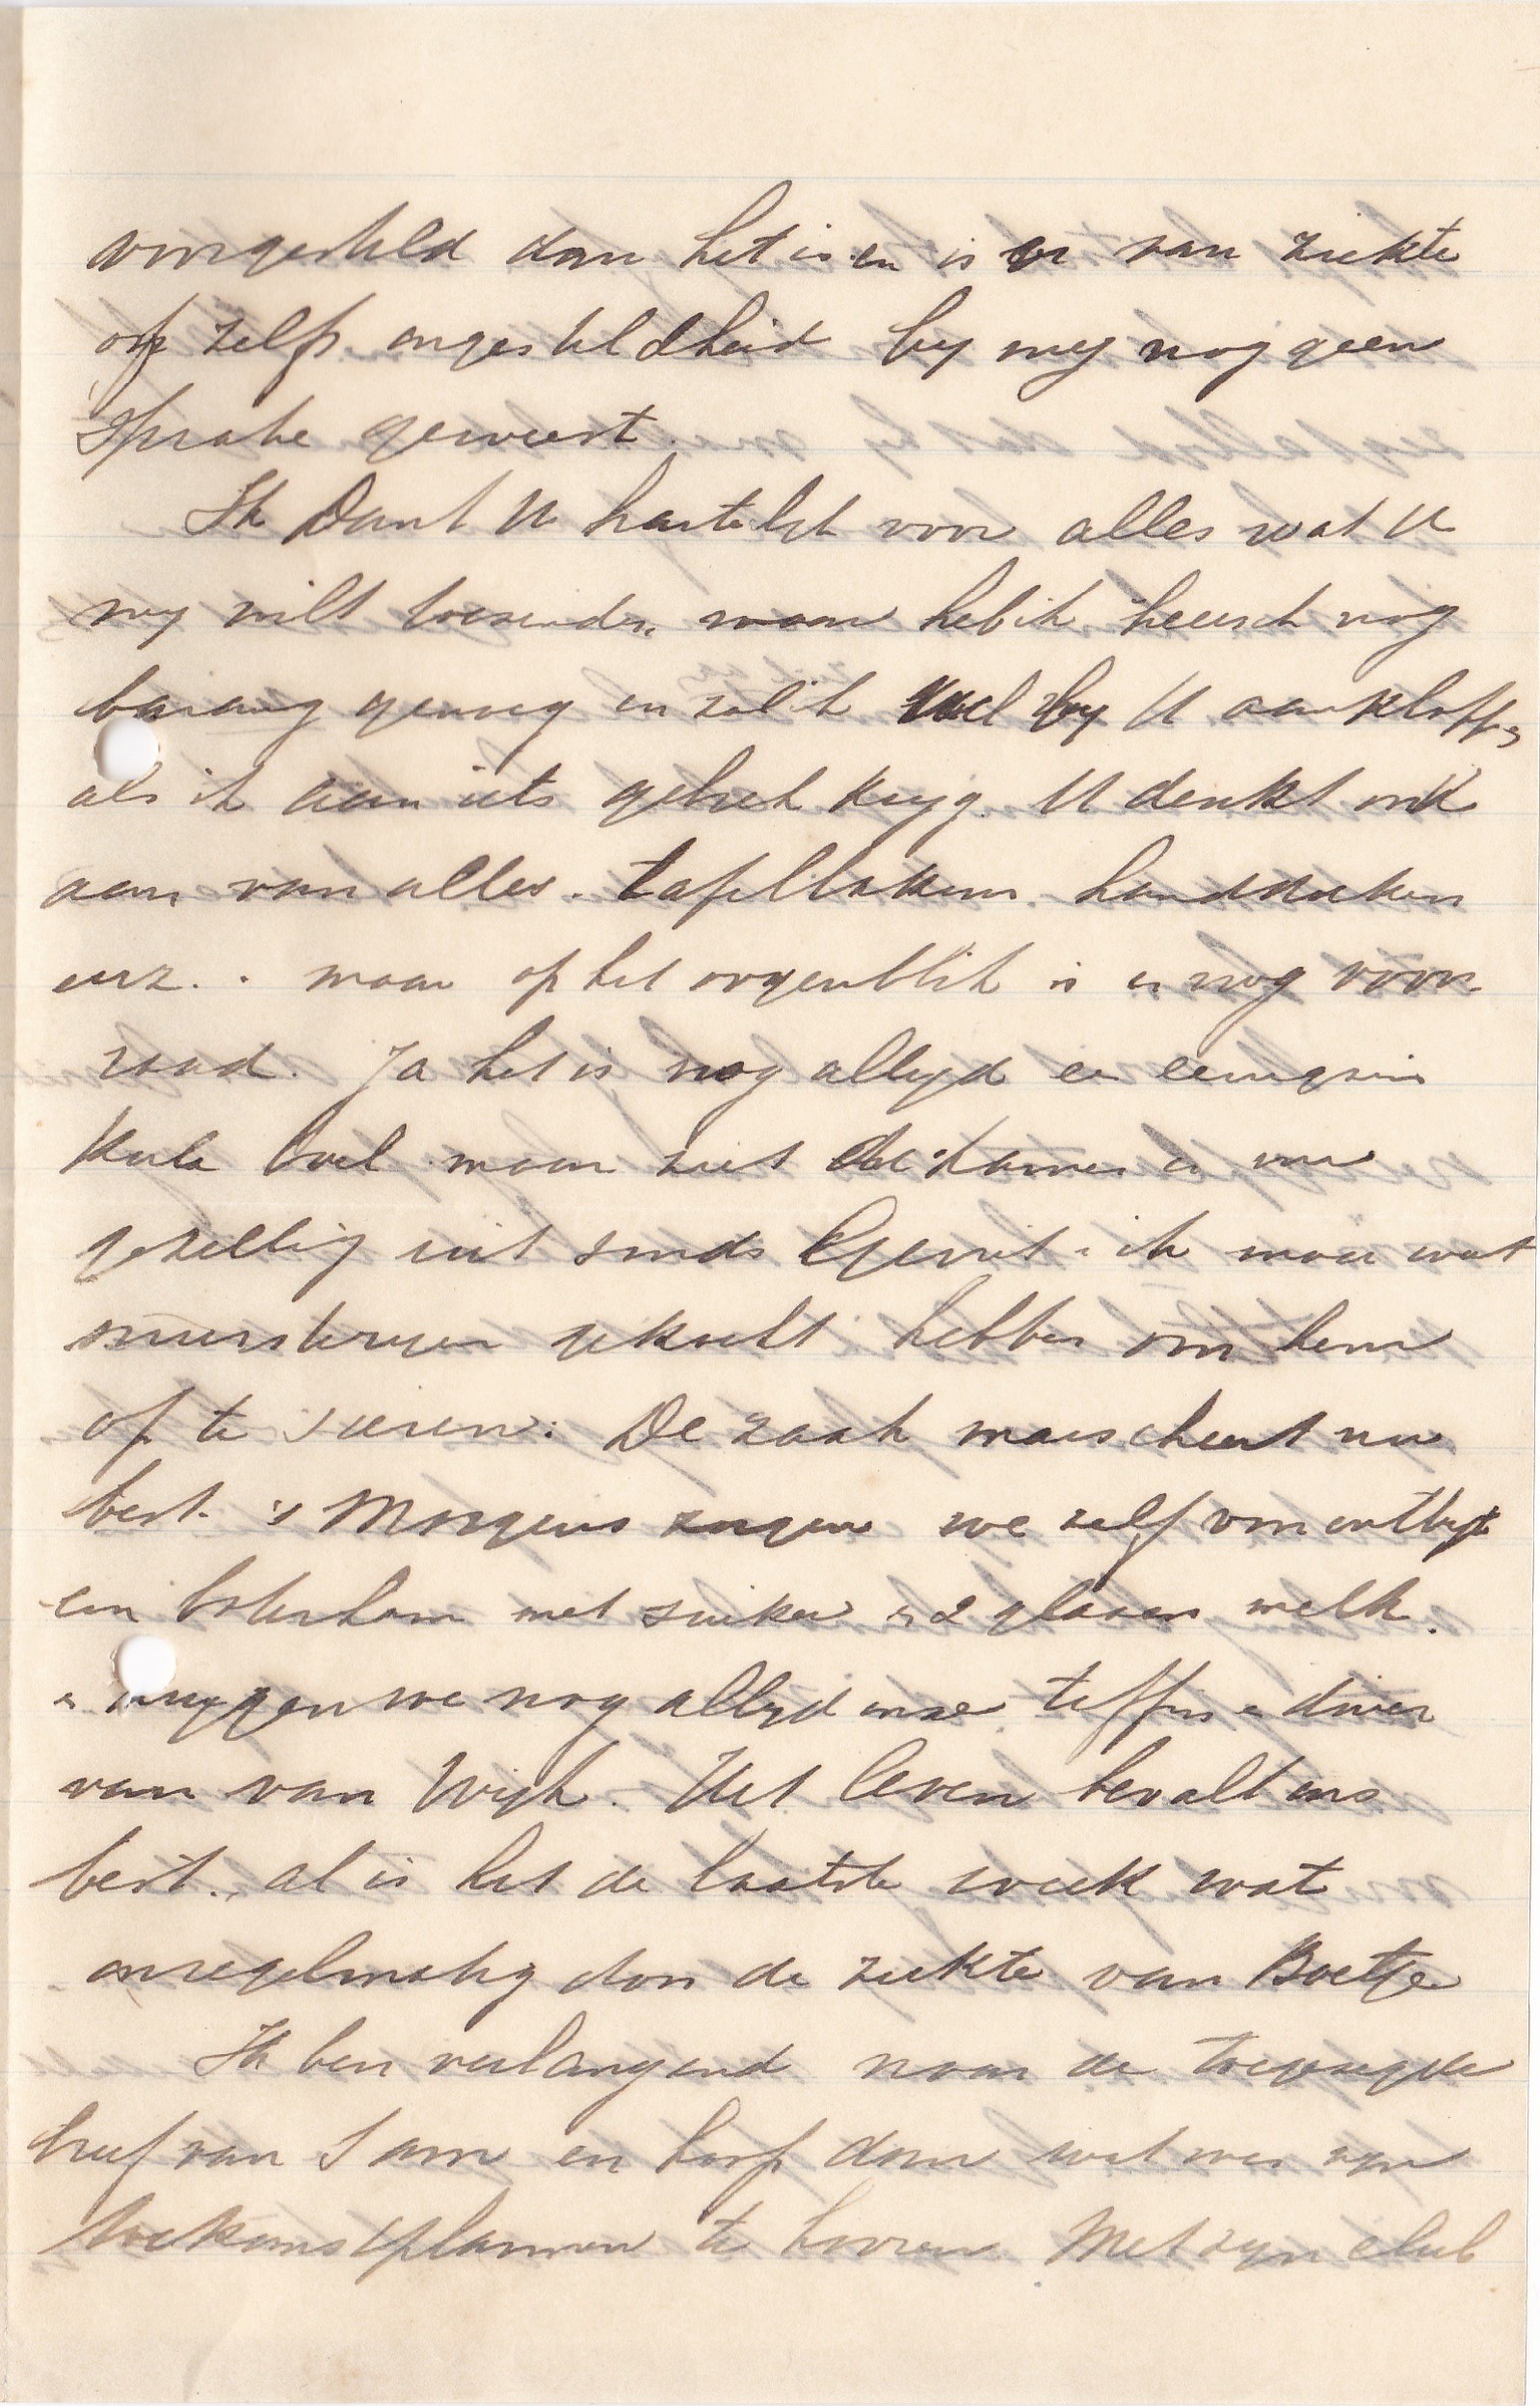 voorgesteld dan het is en is er van ziekte
of zelfs ongesteldheid by my nog geen
sprake geweest.
Ik Dank U hartelyk voor alles wat U
my wilt toezenden maar heb ik heusch nog
barang genoeg en zal ik wel by U aankloppen
als ik aan iets gebrek kryg. U denkt ook
aan van alles. tafellakens. handdoeken
enz. . maar op het oogenblik is er nog voor-
raad. Ja het is nog altyd een eenigzins
kale boel maar ziet de kamer er nu
gezellig uit sinds Gerrit & ik mooie wat
gekocht hebben om hem
op te sieren. De zaak marscheert nu
best. 's Morgens zorgen we zelf voor ontbyt
een boterham met suiker & 2 glazen melk.
& krygen we nog altyd onze tiffin & diner
van van Wyk. Het leven bevalt ons
best., al is het de laatste week wat
onregelmatig door de ziekte van Boetje
Ik ben verlangend naar de toegezegde
brief van Sam en hoop dan wat van zyn
toekomstplannen te hooren. Met zyn club